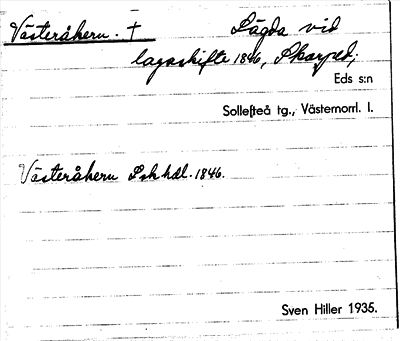 Västeråkern. † Lägda vid
lagaskifte 1846, Skarped,
Eds s:n
Sollefteå tg., Västernorrl. l.
Västeråkern Lsk hdl. 1846.
Sven Hiller 1935.